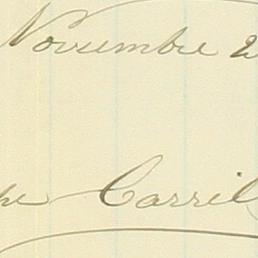 Novembre 2
pe Carril